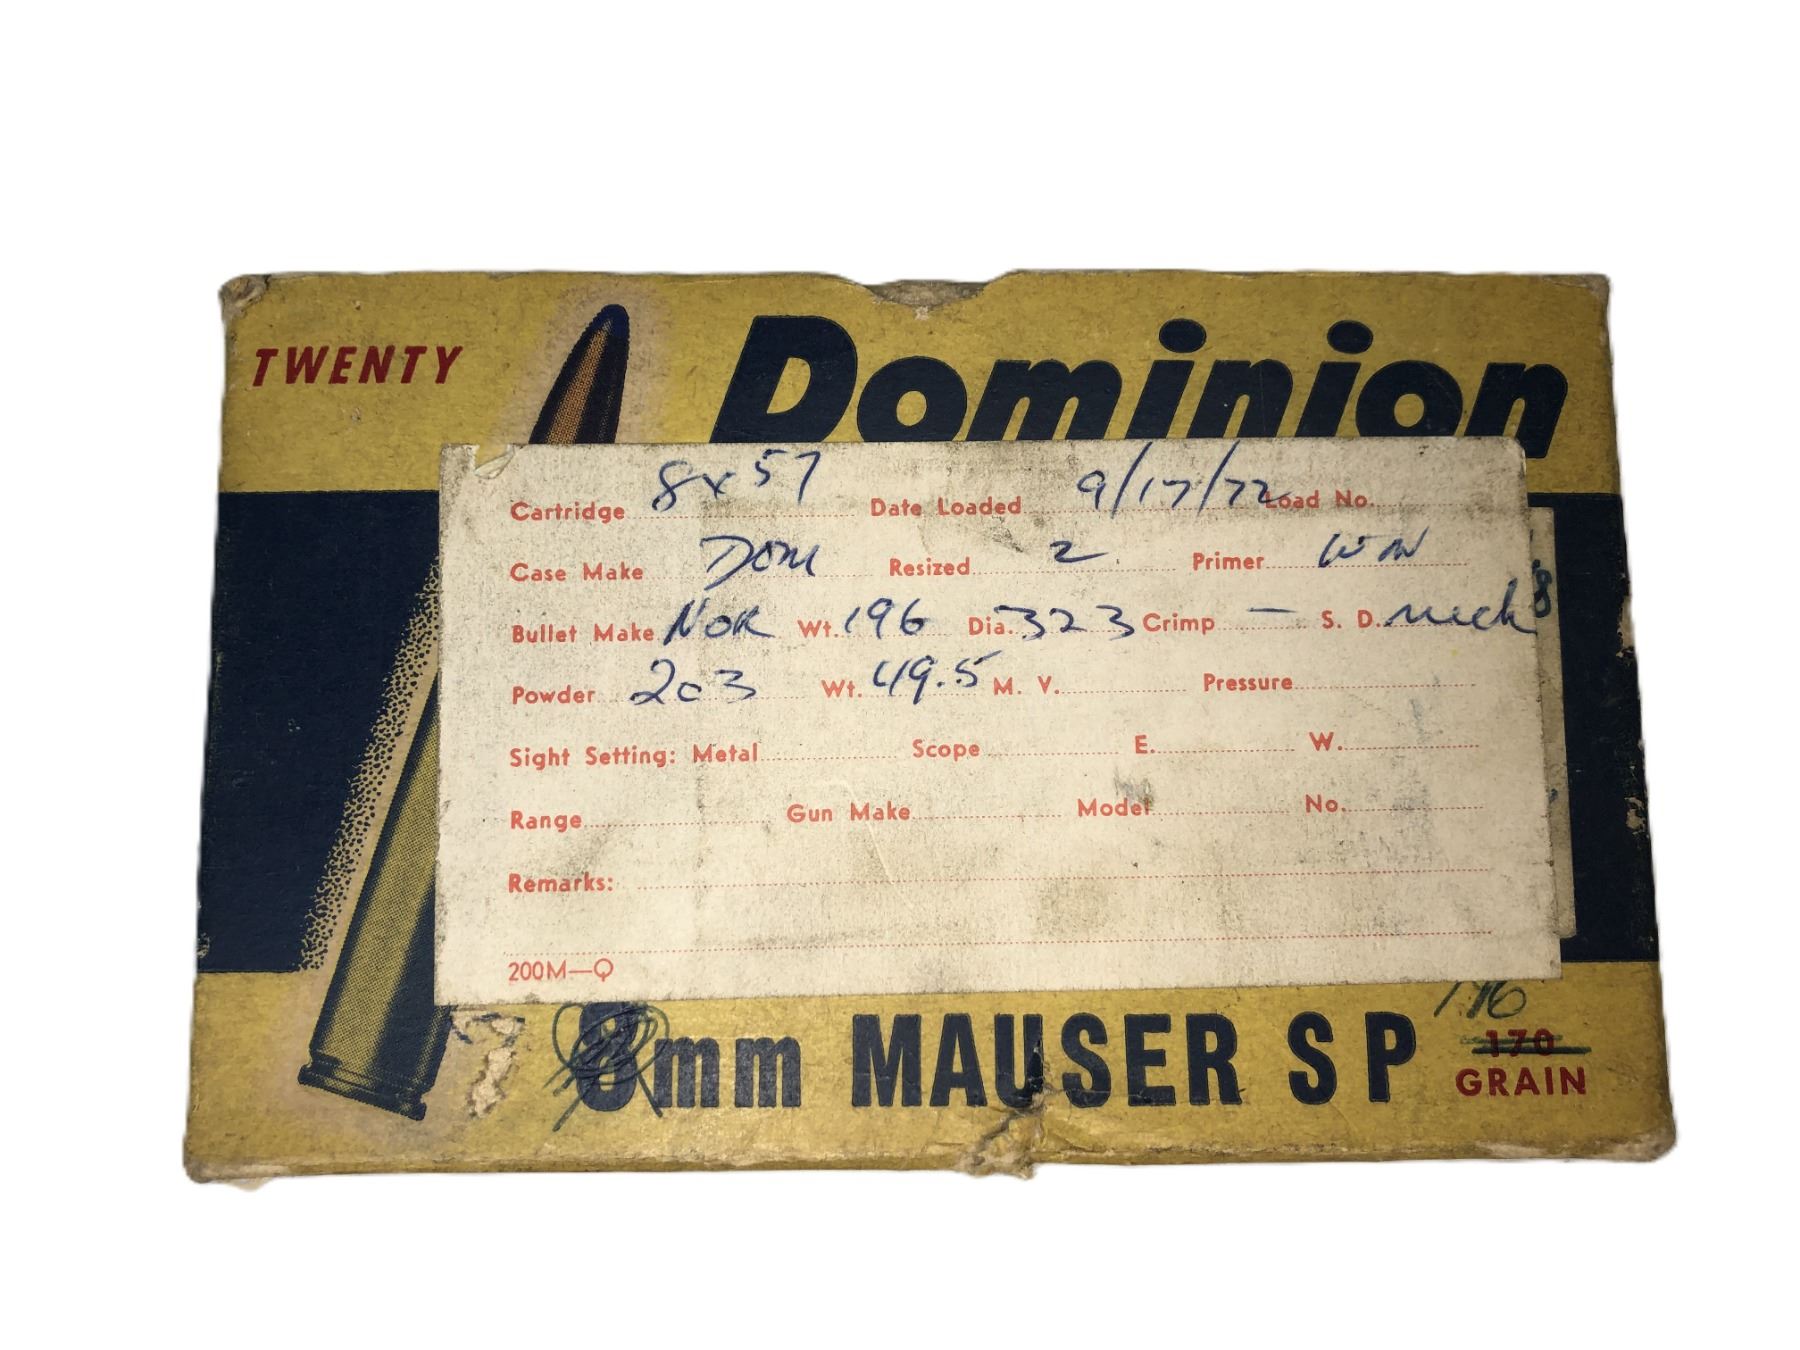 TWENTY
Dominion
Cartridge 8x57 Date Loaded 9/17/72 Load No.
Case Make Dom Resized 2 Primer WIN
Bullet Make NOR Wt. 196 Dia. 323 Crimp — S. D. neck
Powder 203 Wt. 49.5 M. V. Pressure
Sight Setting: Metal Scope E. W.
Range Gun Make Model No.
Remarks:
200M—Q
196
8mm MAUSER SP 170
GRAIN